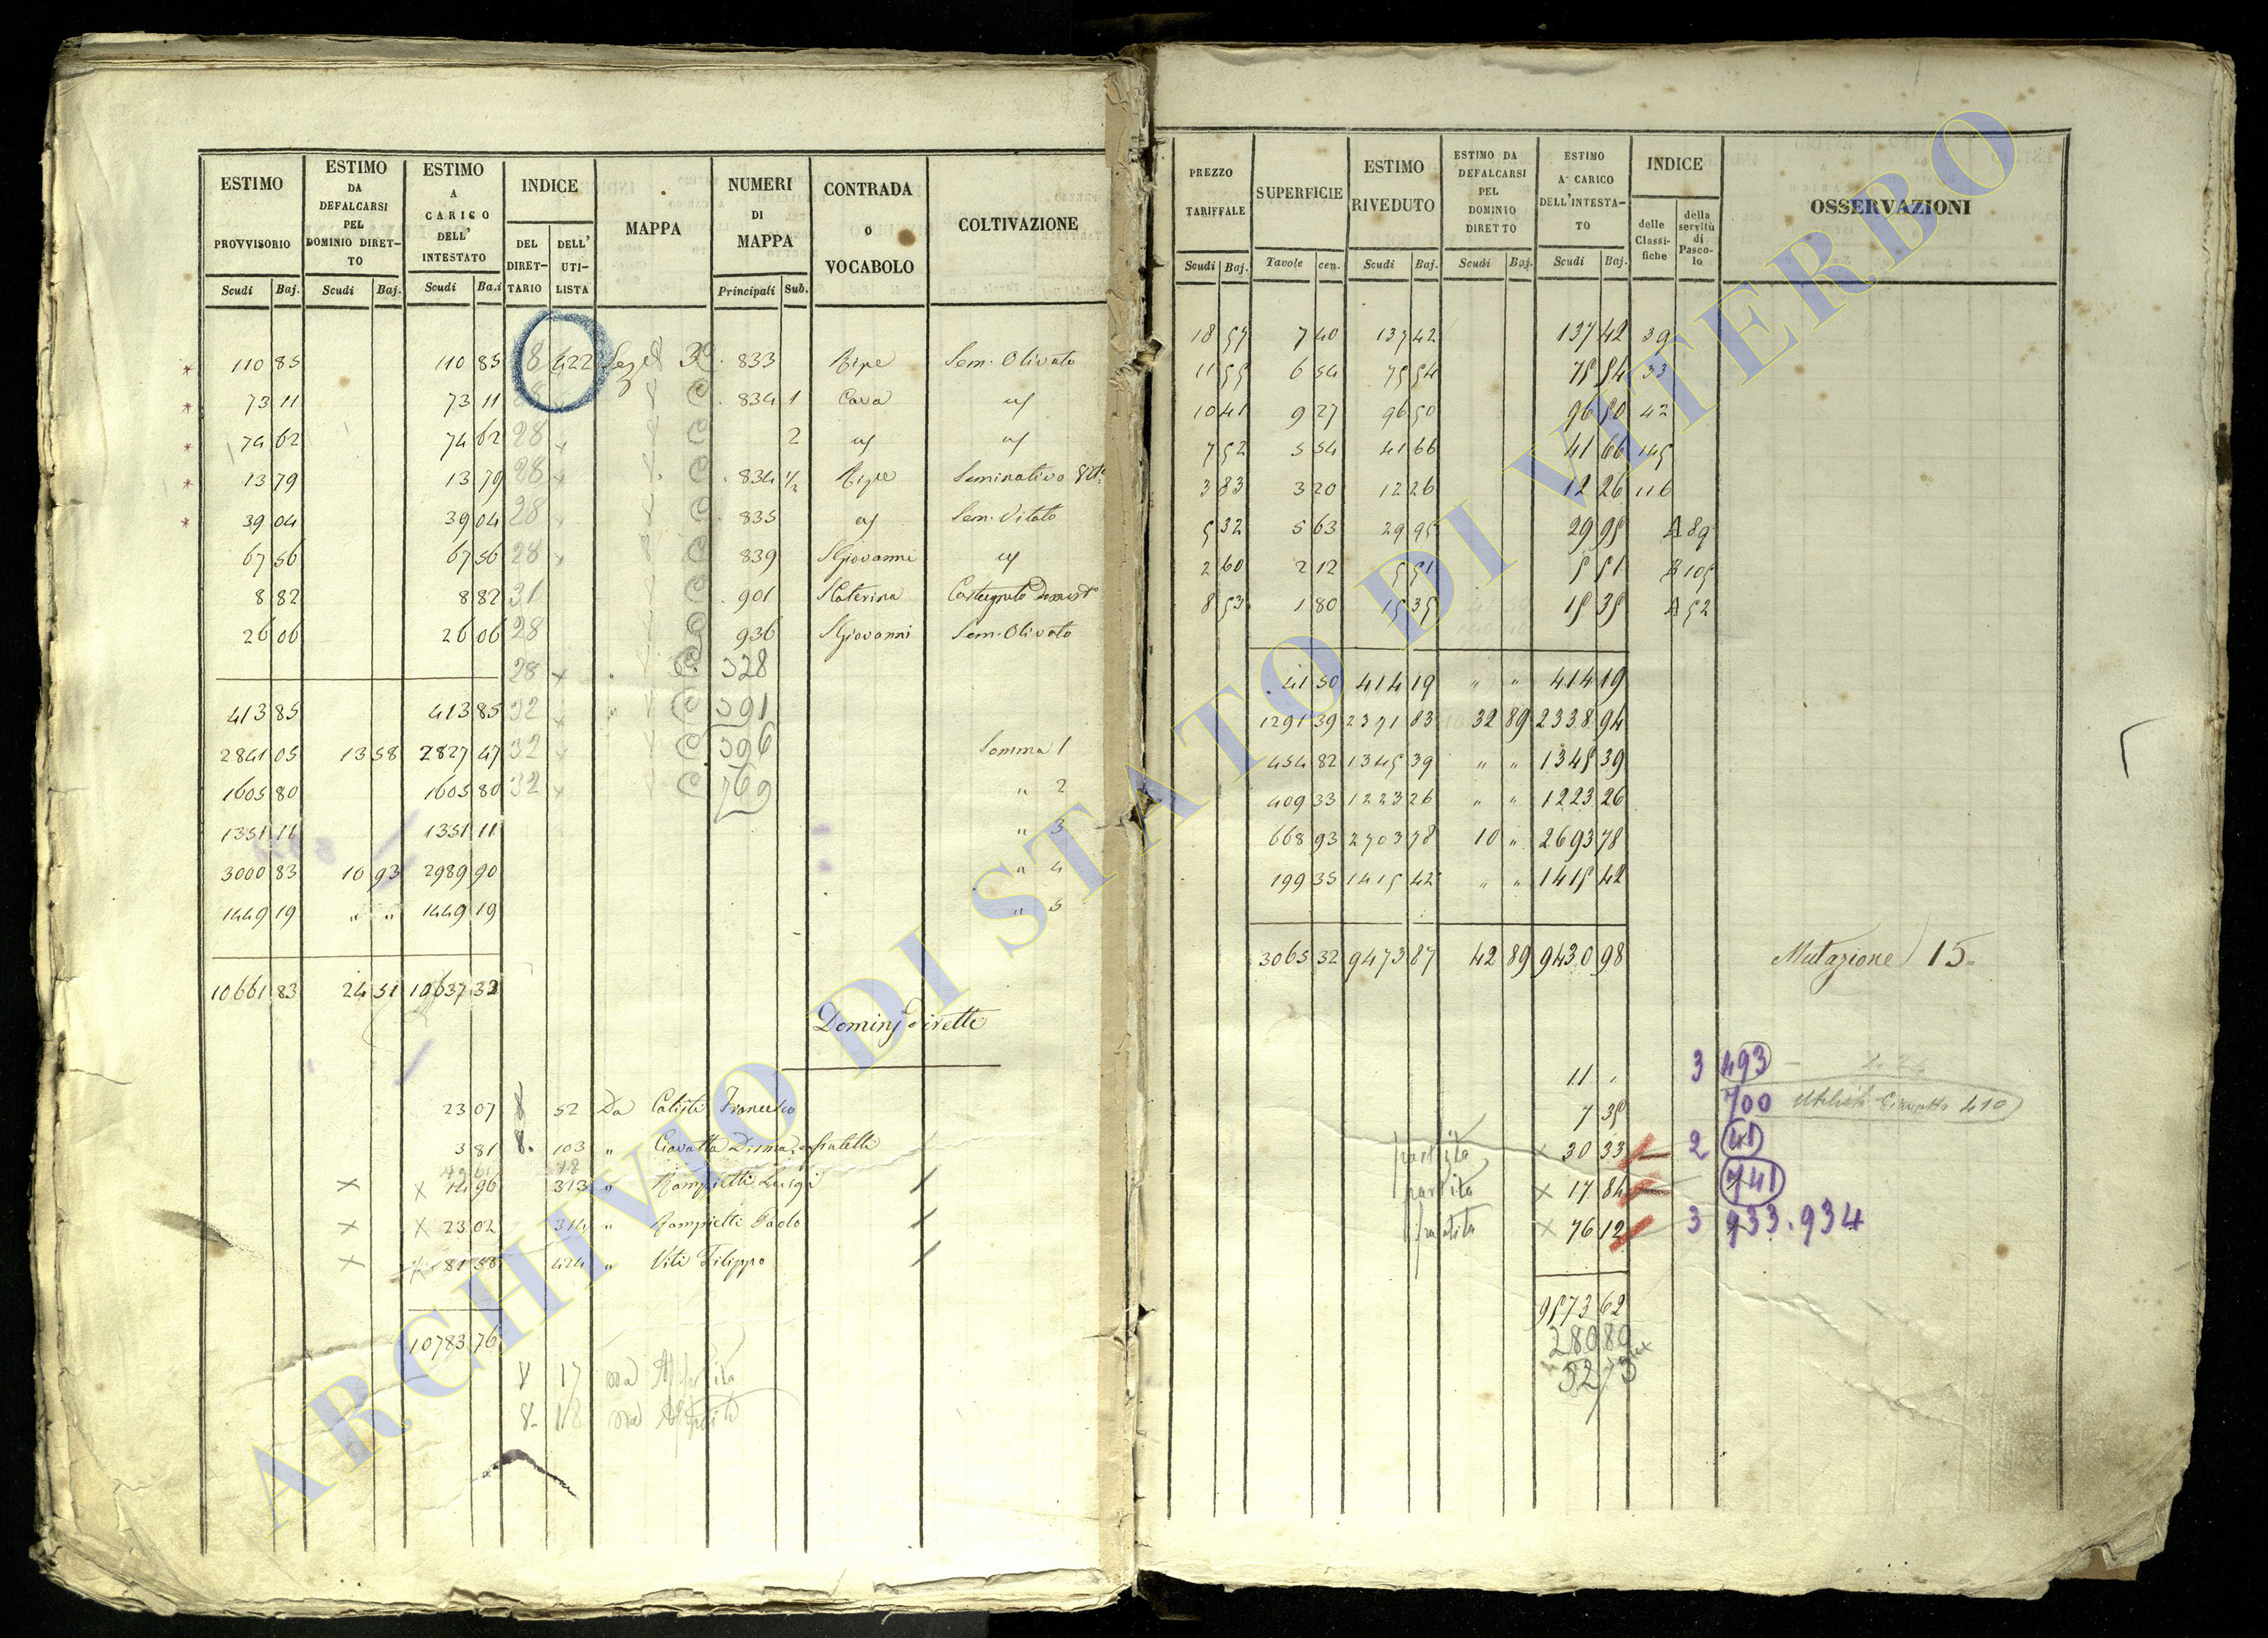 ESTIMO PROVVISORIO
ESTIMO DA DEFALCARSI PEL DOMINIO DIRETTO
ESTIMO A CARICO DELL' INTESTATO
INDICE
DEL DIRETTARIO
DELL' UTILISTA
MAPPA
NUMERI DI MAPPA
CONTRADA O VOCABOLO
COLTIVAZIONE
Scudi Baj. Scudi Baj. Scudi Baj Principali Sub.
110 85 110 85 8 422 833 Ripe Sem. Olivato
73 11 73 11 C 834 1 Cava
74 62 74 62 28 C 2
13 79 13 79 28 C 834 1/2 Ripe Seminativo
39 04 39 04 28 C 835 Sem. Vitato
67 56 67 56 28 C 839 S Giovanni
8 82 8 82 31 C 901 S Caterina
26 06 26 06 28 936 S Giovanni Sem. Olivato
28 328
413 85 413 85 32 C 391
2841 05 13 58 2827 47 32 C 396 Somma 1
1605 80 1605 80 32 C 769 " 2
1351 11 1351 11 " 3
3000 83 10 93 2989 90 " 4
1449 19 " " 1449 19 " 5
10661 83 24 51 10637 32
Dominj diretti
23 07 52 Da Calisti Francesco
3 81 8. 103 " Ciavatta Dima e fratelli
14 96 313 " Rampietti Luigi
23 02 314 " Rampietti Paolo
81 58 424 " Viti Filippo
10783 76
8 17
8. 18
PREZZO TARIFFALE
SUPERFICIE
ESTIMO RIVEDUTO
ESTIMO DA DEFALCARSI PEL DOMINIO DIRETTO
ESTIMO A CARICO DELL'INTESTATO
INDICE
delle Classifiche
della servitù di Pascolo
OSSERVAZIONI
Scudi Baj. Tavole cen. Scudi Baj. Scudi Baj. Scudi Baj.
18 57 7 40 137 42 137 42 39
11 55 6 54 75 54 75 54 33
10 41 9 27 96 50 96 50 42
7 52 5 54 41 66 41 66 145
3 83 3 20 12 26 12 26 116
5 32 5 63 29 95 29 95 A 89
2 60 2 12 5 51 5 51 B 105
8 53 1 80 15 35 15 35 A 52
41 50 414 19 " " 414 19
1291 39 2371 83 32 89 2338 94
454 82 1345 39 " " 1345 39
409 33 1223 26 " " 1223 26
668 93 2703 78 10 " 2693 78
199 35 1415 42 " " 1415 42
3065 32 9473 87 42 89 9430 98
Mutazione 15
11 . 3 493
7 35 700 Utilista Ciavatta 410
partita 30 33 2 41
partita 17 84 741
partita 76 12 3 933.934
9573 62
280 80
5273
ARCHIVIO DI STATO DI VITERBO